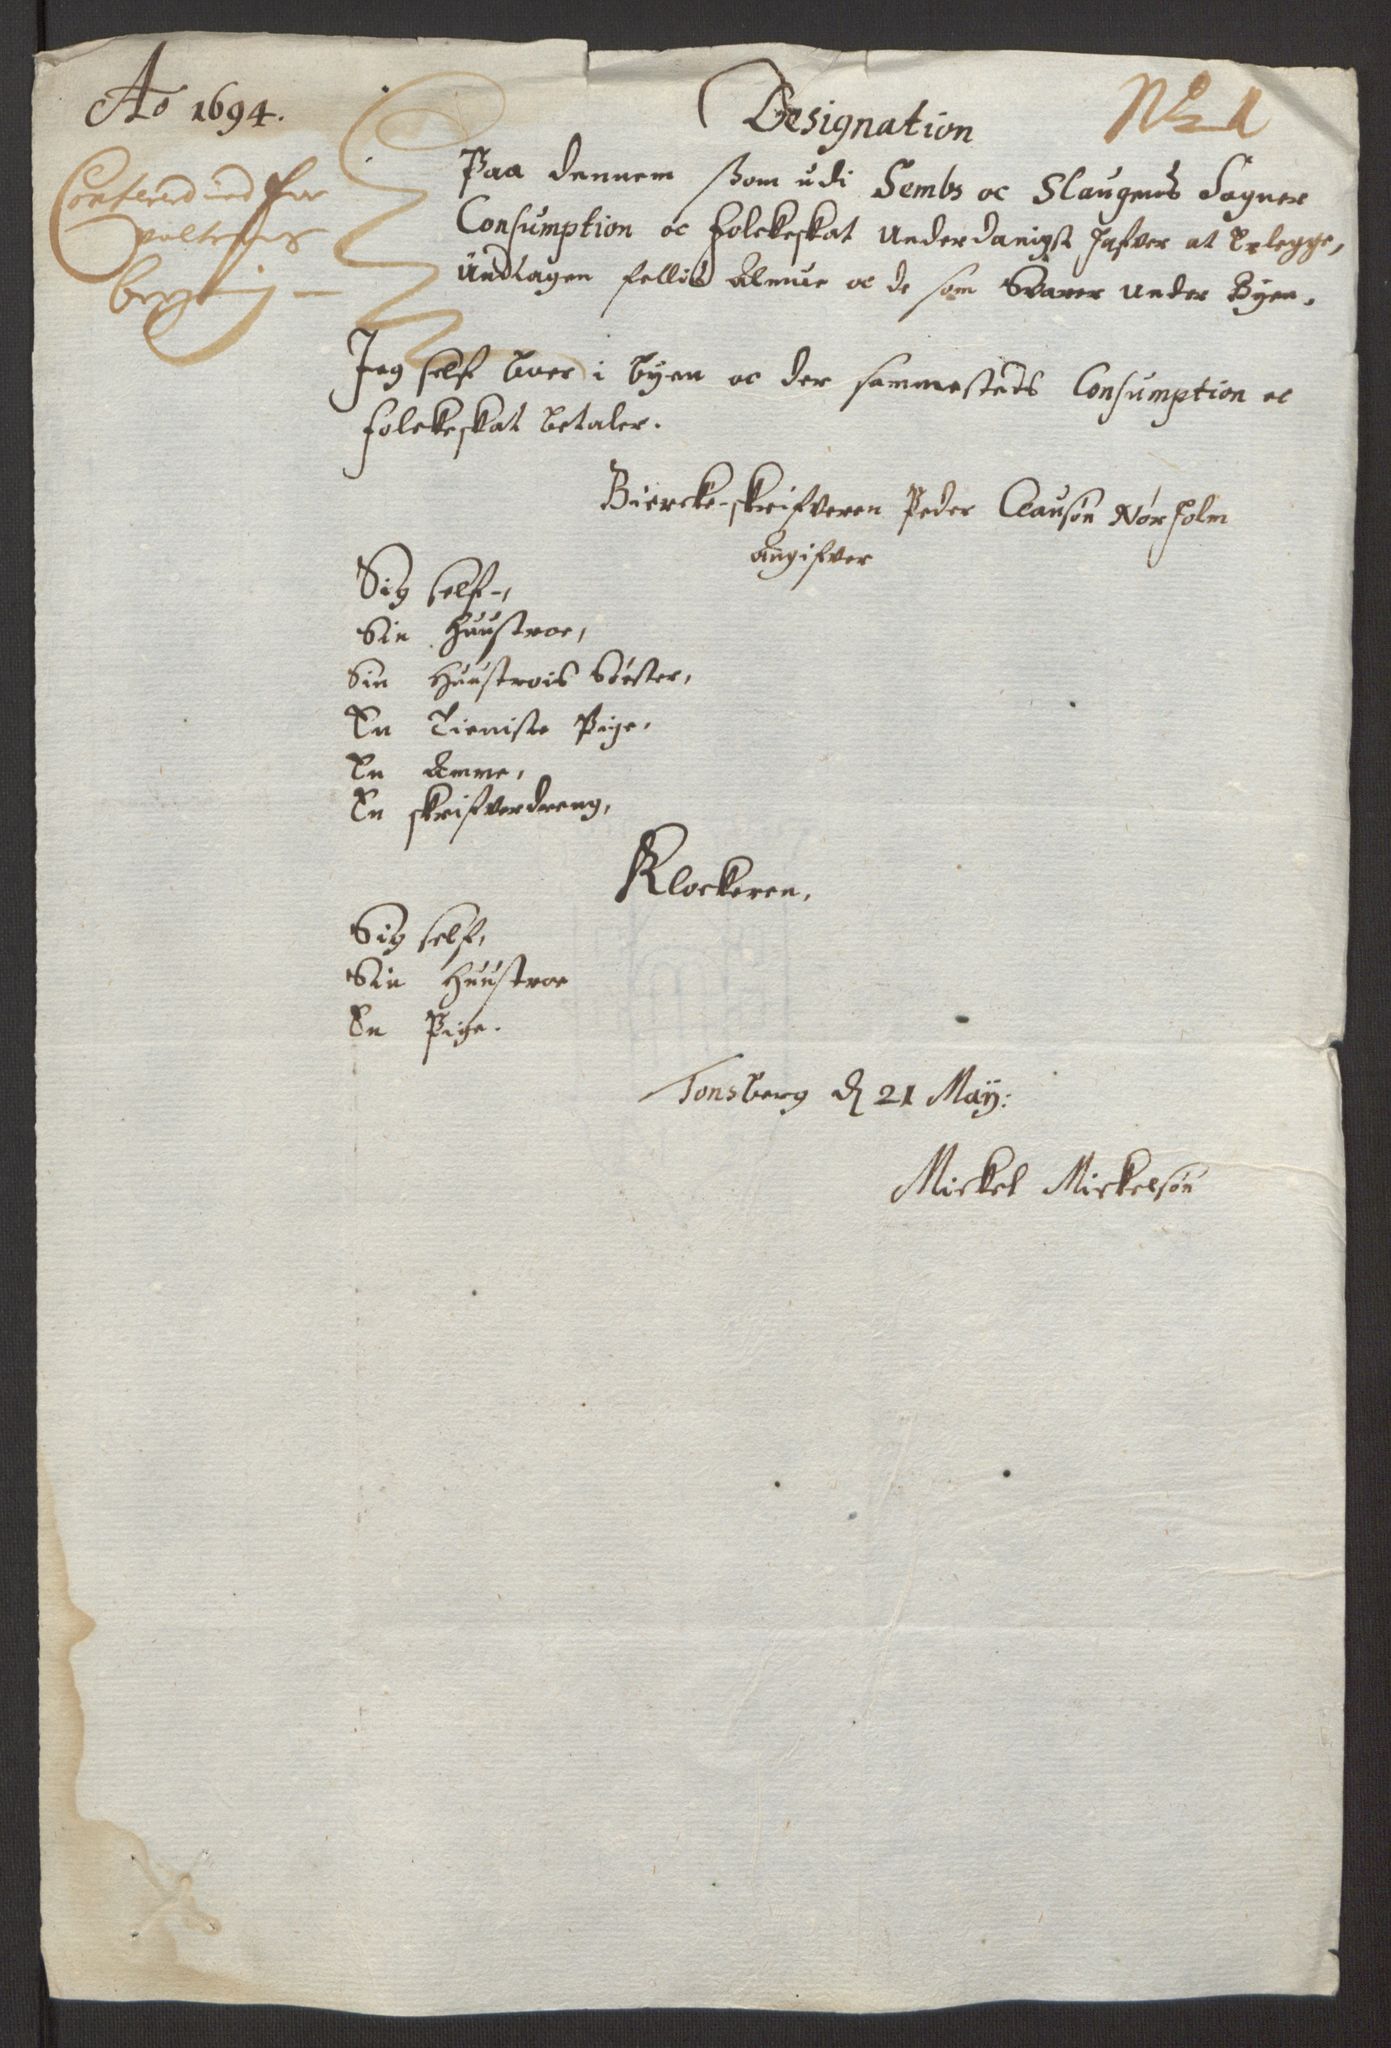 Ao 1694.
No 1
Designation
Paa dennem ßom udi Sembs oc Slaugens Sogner
Consumption oc folckeskat underdanigst hafver at Erlegge,
undtagen felles Almue oc de som Svarer under Byen.
Jeg self boer i byen oc der sammesteds Consumption oc
folckeskat betaler.
Biercke-skrifveren Peder Clausøn Nørholm
angifver
Sig self,
Sin Huustroe,
Sin Huustrois Søster,
En Tieniste Pige,
En Amme,
En skrifverdreng,
Klockeren,
Sig self,
Sin Huustroe
En Pige.
Tonsberg d 21 Maÿ:
Mickel Mickelsøn